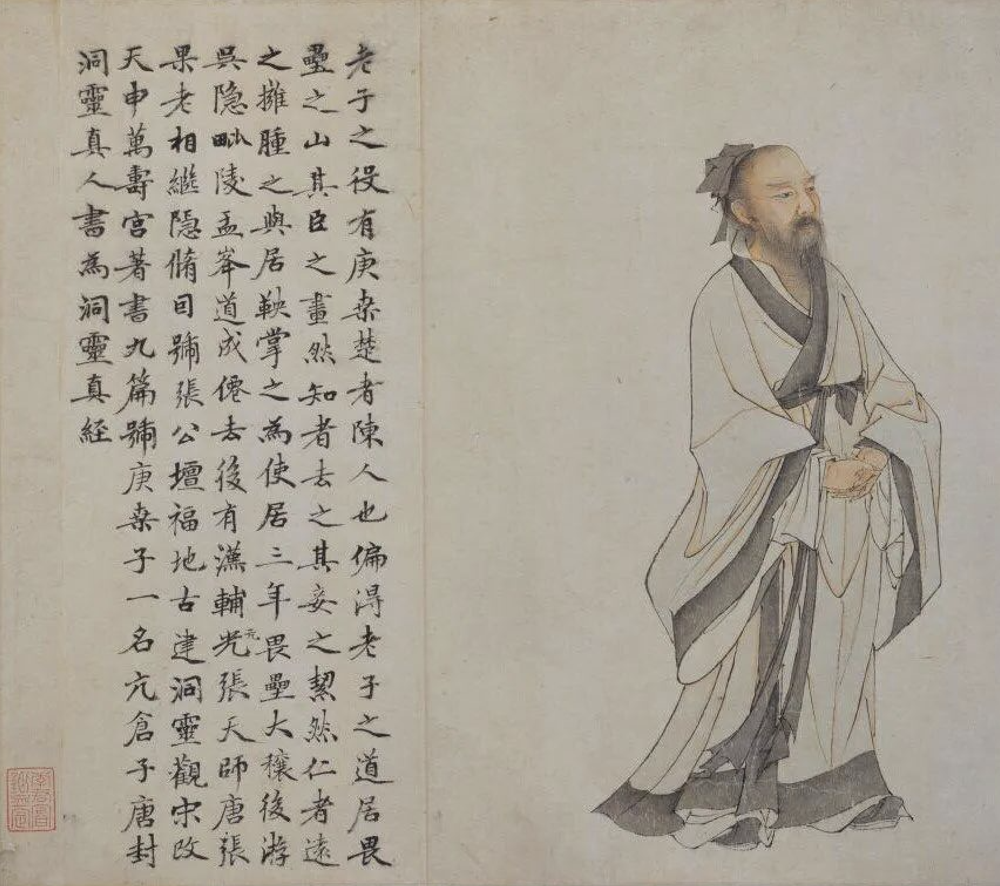 老子之役有庚桒楚者陳人也偏得老子之道居畏
壘之山其臣之畫然知者去之其妾之絜然仁者遠
之擁腫之與居鞅掌之為使居三年畏壘大穰後游
吳隱毗陵孟峯道成僊去後有漢輔光元張天師唐張
果老相繼隱脩自號張公壇福地古建洞靈觀宋改
天申萬壽宮著書九篇號庚桒子一名亢倉子唐封
洞靈真人書為洞靈真經